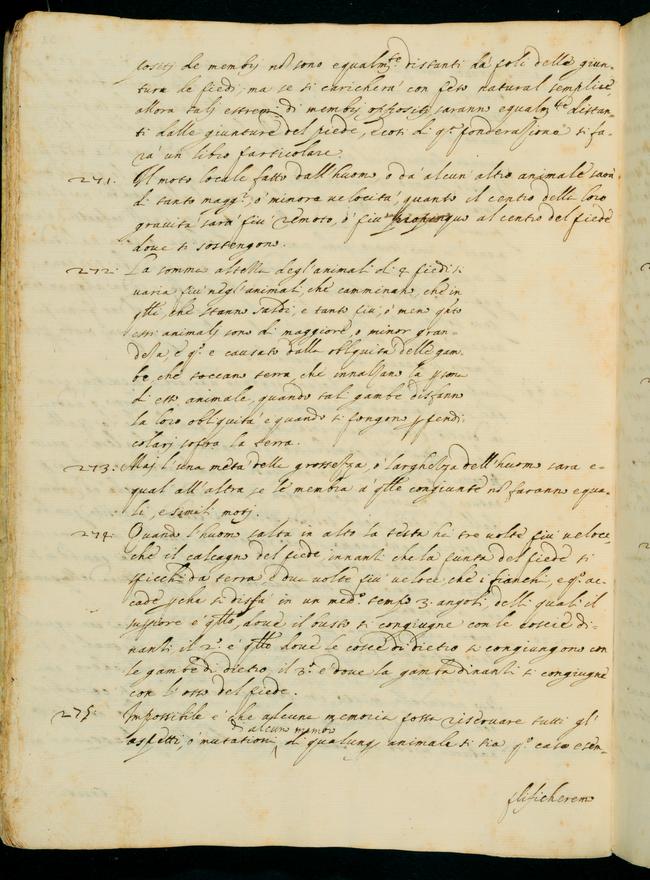 cositi de membrj nō sono equalm.te distanti da poli delle giun-
tura de piedi; ma se si caricherà con peso natural semplice
allora talj estremi di membrj oppositi saranno equalm.te distan-
ti dalle giunture del piede, e così di q.a ponderassione si fa-
rà un libro particolare.
271. Il moto locale fatto dall'huomo, o da alcun altro animale sarà
di tanto magg.re, ò minore velocità, quanto il centro della loro
gravità sarà più remoto, ò più propinquo al centro del piede
dove si sostengono.
272. La somma altessa degl'animali di 4 piedi si
varia più negl'animali, che camminano, che in
q̄lli, che stanno saldi, e tanto più, ò men q̄to
essi animalj sono di maggiore, o minor gran-
dessa, e q.o e causato dalla obliquità delle gam-
be, che toccano terra, che innalsano la
di esso animale, quando tal gambe disfanno
la loro obliquità e quando si pongono ꝑpendi-
colarj sopra la terra.
273. Maj l'una metà della grossessa, ò larghessa dell'huomo sara e-
qual all'altra se le membra a q̄lle congiunte nō faranno equa-
li, e simili motj.
274. Quando l'huomo salta in alto la testa hà tre volte più veloce,
che il calcagno del piede innanti che la punta del piede si
spicchi da terra e due volte più veloce, che i fianchi, e q.o ac-
cade ꝑche si disfà in un med.o tempo 3. angoli, delli quali il
supiore e q̄llo, dove il busto si congiugne con le coscie di-
nanti il 2.o è q̄llo dove le coscie di dietro si congiungono con
le gambe di dietro, il 3.o è dove la gamba dinanti si congiugne
con l'osso del piede.
275. Impossibile è che alcuna memoria possa riservare tutti gl'
d'alcun membro
aspetti, ò mutationi di qualunq animale si sia q.o caso esem-
plificheremo